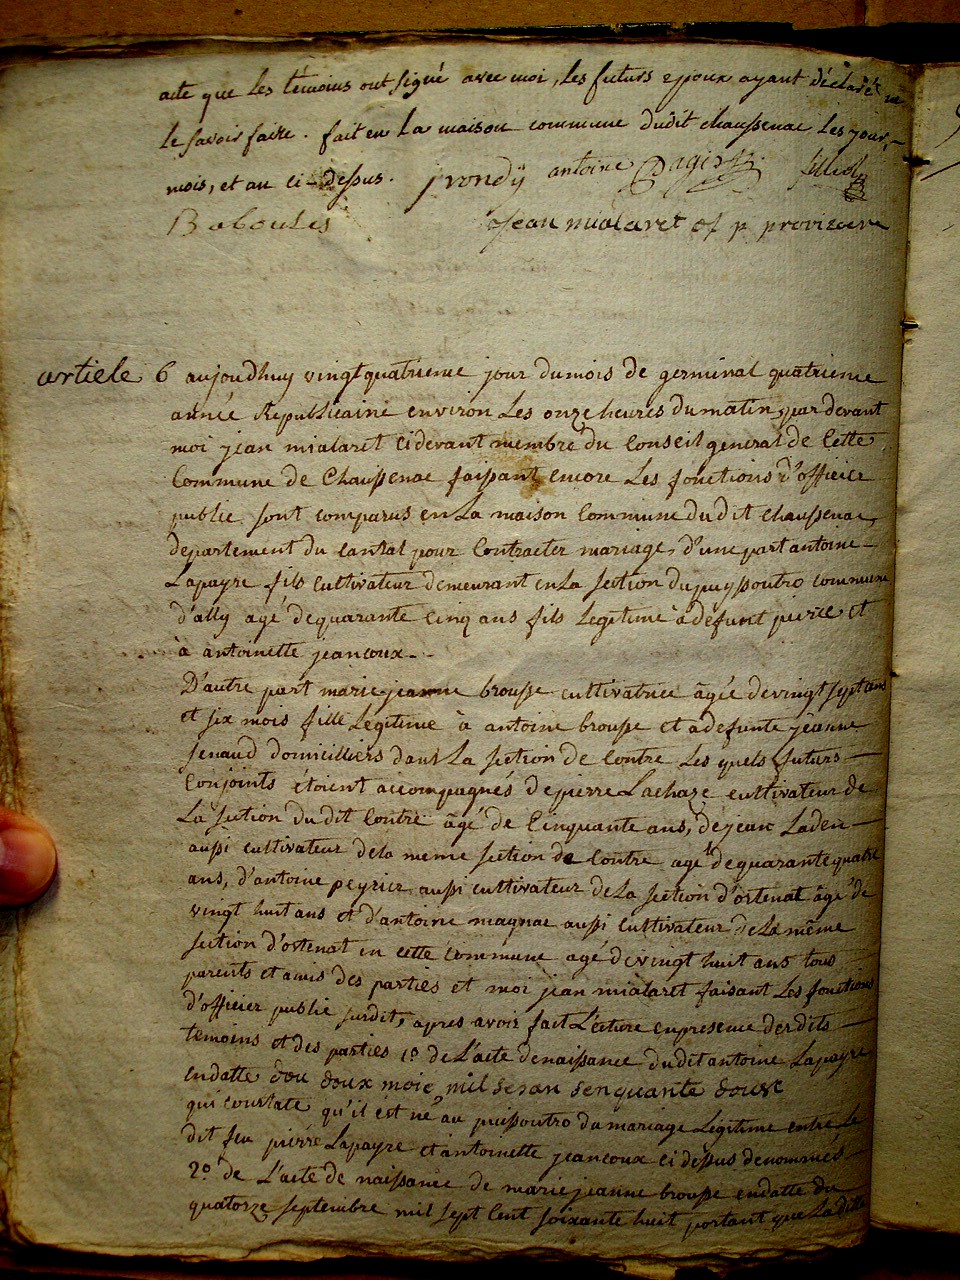 acte que les témoins ont signé avec moi, les futurs epoux ayant déclaré ne
le savoir faire. fait en la maison commune dudit chaussenac les jour,
mois, et an ci-dessus. jrondÿ antoine Dagis
Baboulès Jean mialaret of p provizoire
article 6 aujoudhuy vingtquatrieme jour du mois de germinal quatrieme
année Republicaine environ les onze heures du matin, par devant
moi jean mialaret cidevant membre du Conseil general de Cette
Commune de Chaussenac faissant encore Les fonctions d'officier
public sont comparus en La maison Commune dudit chaussenac,
departement du cantal pour Contracter mariage, d'une part antoine
Lapayre fils cultivateur demeurant en La section du puyssoutro commune
d'ally agé de quarante cinq ans fils Legitime à defunt pierre et
à antoinette jeancoux..
D'autre part marie jeanne brousse cultivatrice âgée de vingt sept ans
et six mois fille Legitime à antoine brousse et a defunte jeanne
senaud domicilliers dans La section de Contre Les quels futurs
Conjoints étoient accompagnés de pierre Lachaze cultivateur de
La section dudit Contre âgé de Cinquante ans, de jean Laden
aussi cultivateur de la meme section de Contre agé de quarante quatre
ans, d'antoine peyrier aussi cultivateur de La section d'ostenat âgé de
vingt huit ans et d'antoine magnac aussi Cultivateur de La même
section d'ostenat en cette commune agé de vingt huit ans tous
parents et amis des parties et moi jean mialaret faisant Les fonctions
d'officier public surdit, apres avoir fait Lecture en presence des dits
temoins et des parties 1º de L'acte de naissance dudit antoine Lapayre
en datte dou doux moic mil sesan senquante douse
qui constate qu'il est né au puissoutro du mariage Légitime entre Le
dit feu pierre Lapayre et antoinette jeancoux ci dessus denommés
2º de L'acte de naissance de marie jeanne brousse en datte du
quatorze septembre mil sept Cent soixante huit portant que La ditte